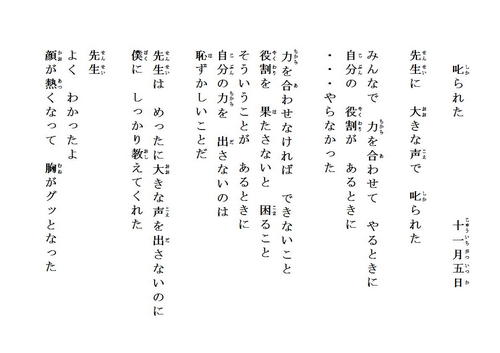 叱られた　十一月五日
先生に　大きな声で　叱られた
みんなで　力を合わせて　やるときに
自分の　役割が　あるときに
・・・やらなかった
力を合わせなければ　できないこと
役割を　果たさないと　困ること
そういうことが　あるときに
自分の力を　出さないのは
恥ずかしいことだ
先生は　めったに大きな声を出さないのに
僕に　しっかり教えてくれた
先生
よく　わかったよ
顔が熱くなって　胸がグッとなった